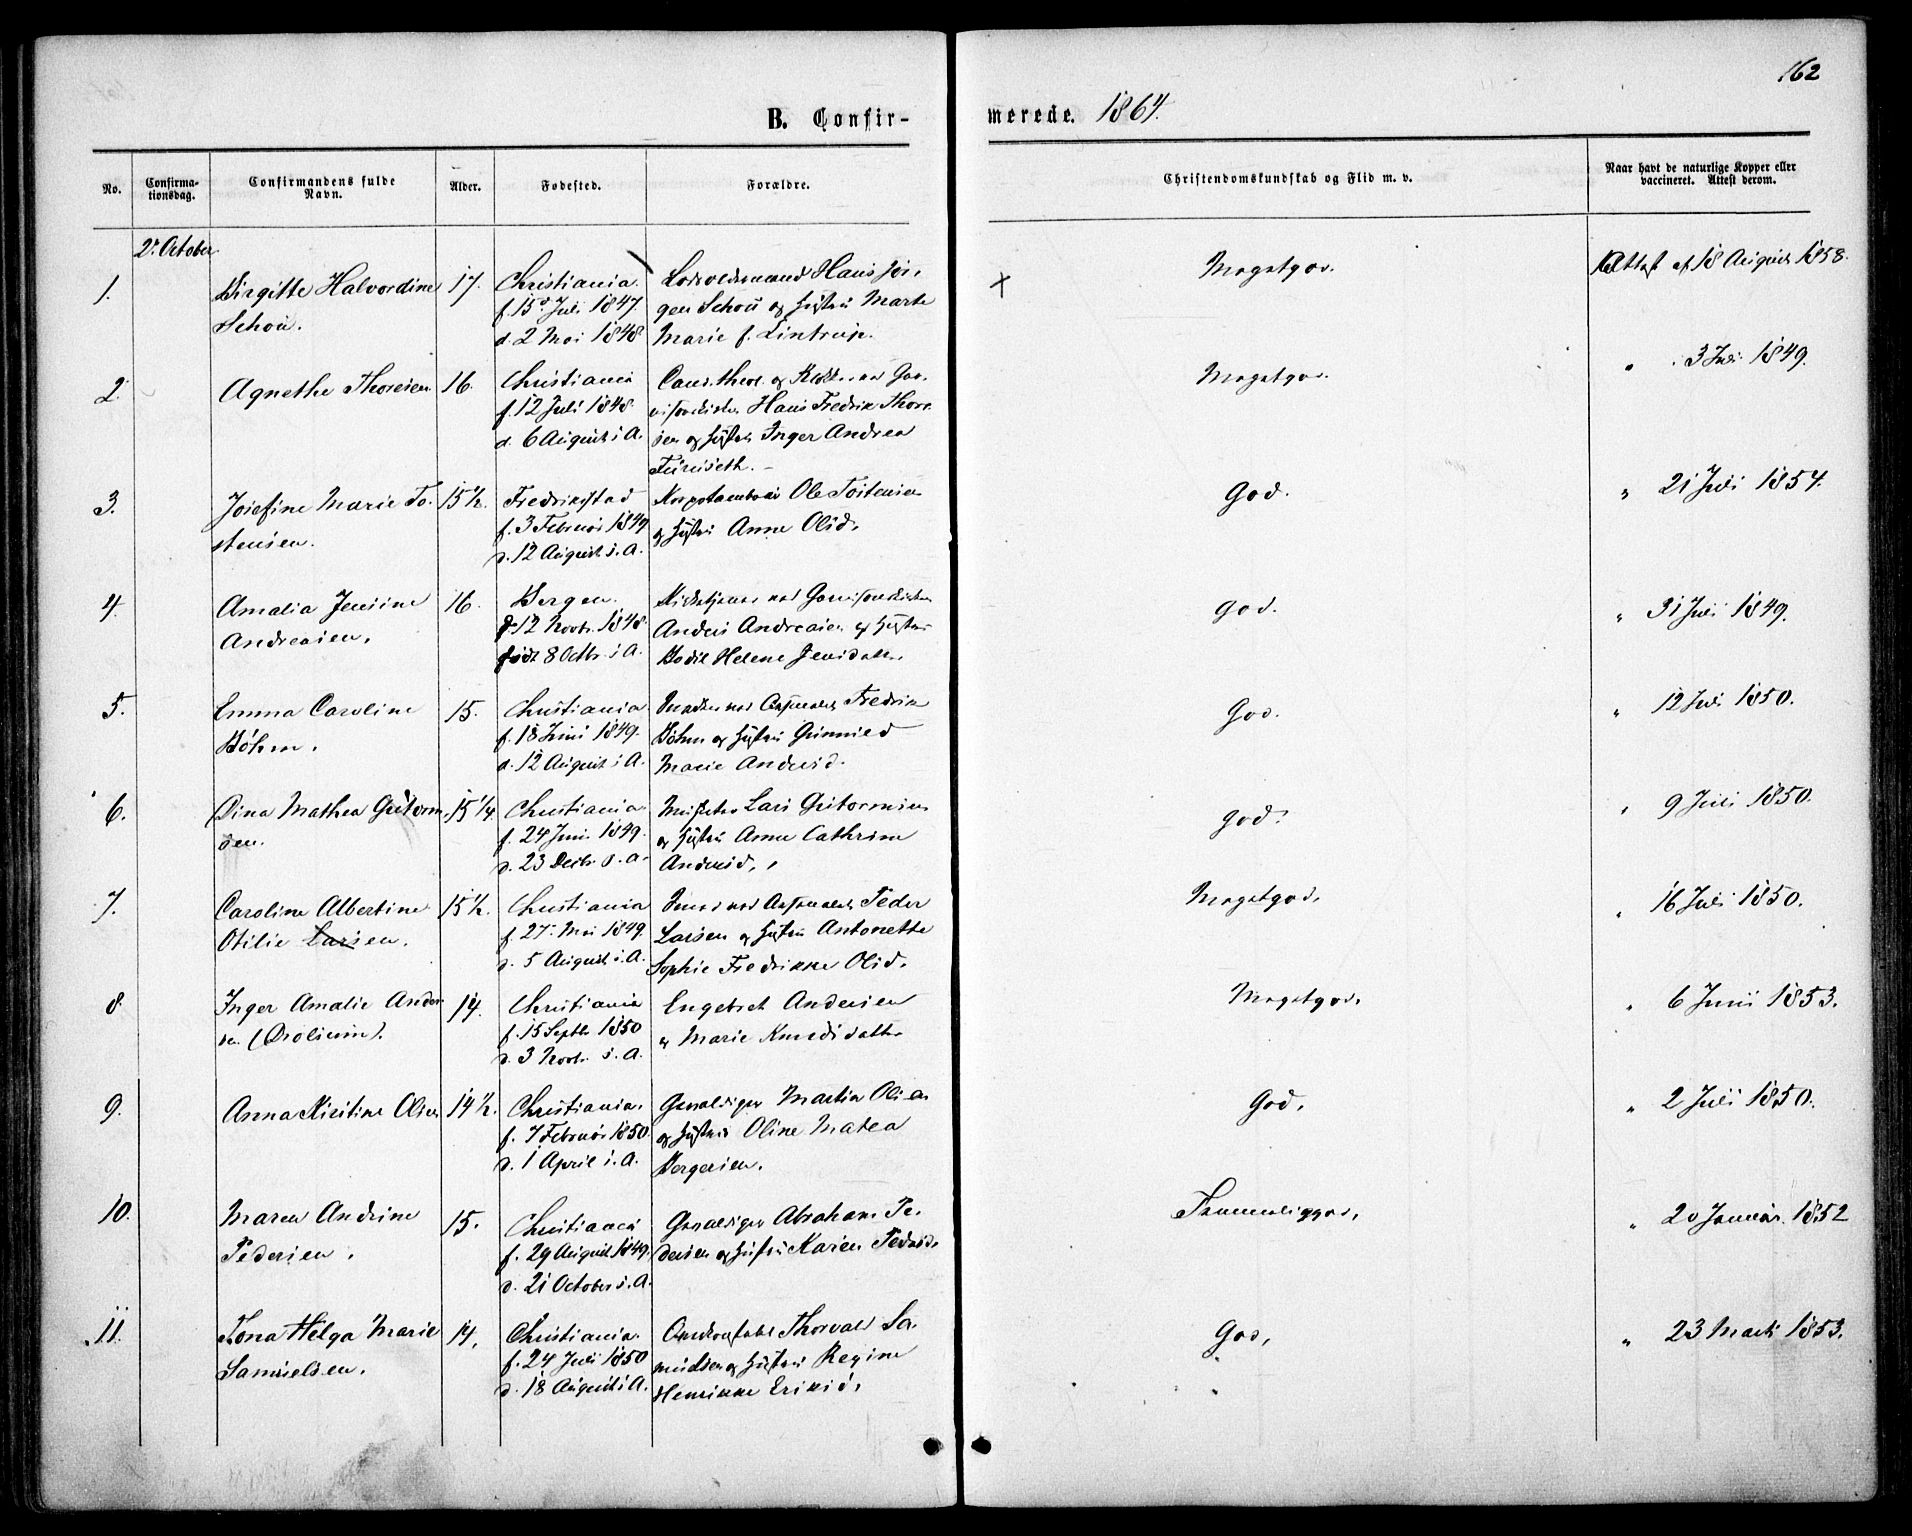 162
B. Confir-
merede. 1864.
No.
Confirma-
tionsdag.
Confirmandens fulde
Navn.
Alder.
Fødested.
Forældre.
Christendomskundskab og Flid m. v.
Naar havt de naturlige Kopper eller
vaccineret. Attest derom.
2. October
1. Birgitte Halvordine 17. Christiania. Hans Jør- Megetgod. Attest af 18 August 1858.
Schou. f. 15 Juli 1847. gen Schou og Hustru Marte
d. 2 Mai 1848. Marie f. Lintrup.
2. Agnethe Thoresen 16. Christiania Cand. theol. og Megetgod. " 3 Juli 1849.
f. 12 Juli 1848. Hans Fredrik Thore-
d. 6 August s. A. sen og Hustru Inger Andrea
Furuseth.
3. Josefine Marie To- 15 1/2. Fredrikstad Ole Tostensen God. " 21 Juli 1854.
stensen. f. 3 Februar 1849 og Hustru Anne Olsd.
d. 12 August s. A.
4. Amalia Jensine 16. Bergen. God. " 31 Juli 1849.
Andreasen. 12 Novbr. 1848. Anders Andreasen og Hustru
født 8 Octbr. s. A. Bodil Helene Jensdatter.
5. Emma Caroline 15. Christiania. Fredrik God. " 12 Juli 1850.
Bøhm. f. 18 Juni 1849. Bøhm og Hustru
d. 12 August s. A. Marie Andersd.
6. Dina Mathea Guttorm- 15 1/4. Christiania. Lars Guttormsen God. " 9 Juli 1850.
sen. f. 24 Juni 1849. og Hustru Anne Cathrine
d. 23 Decbr. s. A. Andersd.
7. Caroline Albertine 15 1/2. Christiania Peder Megetgod. " 16 Juli 1850.
Otilie Larsen. f. 27 Mai 1849. Larsen og Hustru Antonette
d. 5 August s. A. Sophie Fredrikke Olsd.
8. Inger Amalie Ander- 14. Christiania Engebret Andersen Megetgod. " 6 Juni 1853.
sen f. 15 Septbr 1850 og Marie Knudsdatter
d. 3 Novbr. s. A.
9. Anna Kirstine Olsen 14 1/2. Christiania. Martin Olsen God. " 2 Juli 1850.
f. 7 Februar 1850. og Hustru Oline Matea
d. 1 April s. A. Bergersen.
10. Maren Andrine 15. Christiania Abraham Pe- Temmeliggod. " 20 Januar 1852
Pedersen. f. 29 August 1849. dersen og Hustru Karen Pedersd.
d. 21 October s. A.
11. Tona Helga Marie 14. Christiania. Thorvald Sa- God. " 23 Marts 1853.
Samuelsen. f. 24 Juli 1850 muelsen og Hustru Regine
d. 18 August s. A. Henrikke Eriksd.